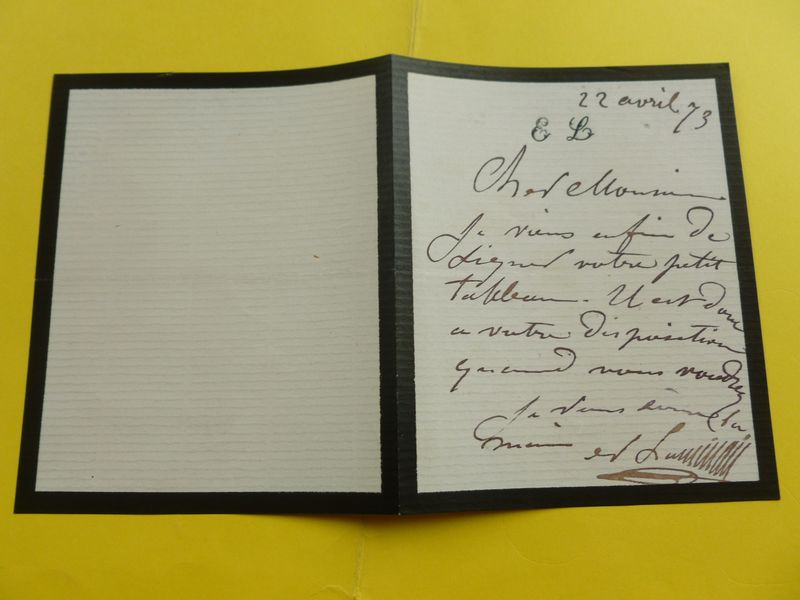 22 avril 73
E L
Cher Monsieur
Je viens enfin de
signer votre petit
tableau. Il est donc
a votre disposition
quand vous voudrez
Je vous serre la
main ed Luminais